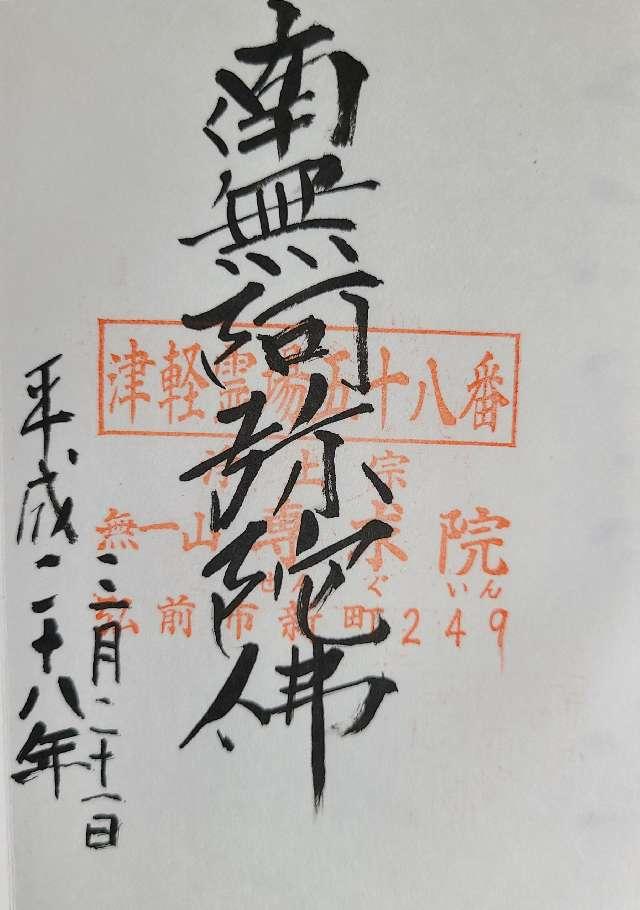 南無阿弥陀佛
津軽霊場五十八番
浄土宗
無一山 專求院
ぜんぐいん
弘前市新町249
平成二十八年
三月二十一日